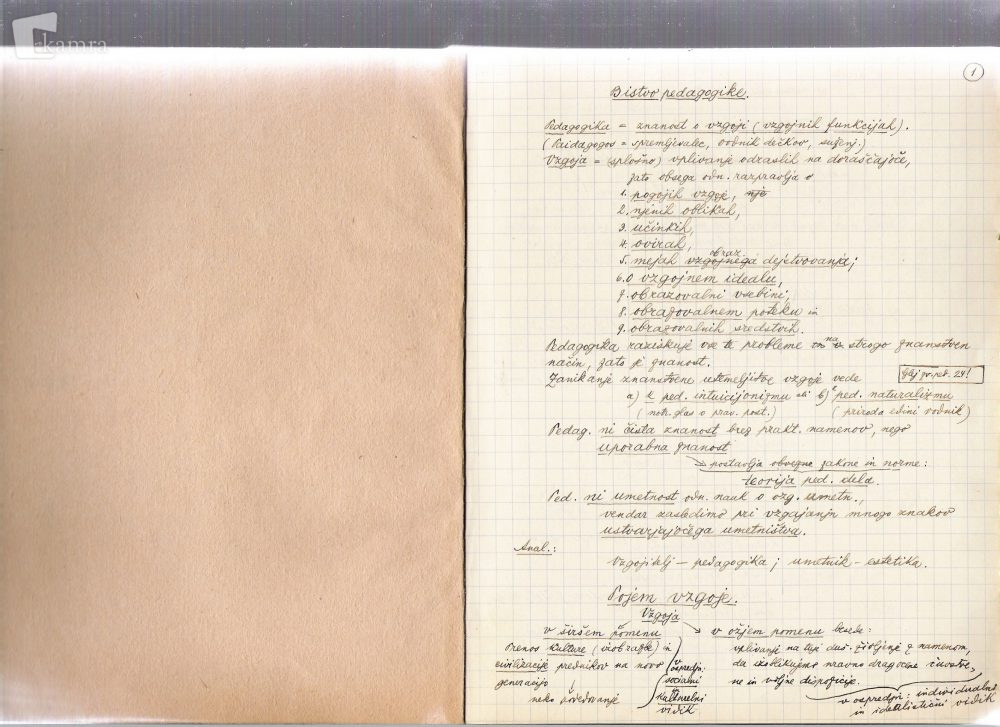 kamra
1
Bistvo pedagogike.
Pedagogika = znanost o vzgoji (vzgojnih funkcijah).
(Paidagogos = spremljevalec, vodnik dečkov, suženj.)
Vzgoja = (splošno) vplivanje odraslih na doraščajoče,
zato obsega odn. razpravlja o
1. pogojih vzgoje, nje
2. njenih oblikah,
3. učinkih,
4. ovirah,
obraz.
5. mejah vzgojnega dejstvovanja;
6. o vzgojnem idealu,
7. obrazovalni vsebini,
8. obrazovalnem poteku in
9. obrazovalnih sredstvih.
Pedagogika raziskuje vse te probleme na strogo znanstven
način, zato je znanost.
Zanikanje znanstvene utemeljitve vzgoje vede
Glej 29!
a) k ped. intuicijonizmu ali b) k ped. naturalizmu
(notr. glas o prav. post.) (priroda edini vodnik)
Pedag. ni čista znanost brez prakt. namenov, nego
uporabna znanost
→ postavlja obvezne zakone in norme:
teorija ped. dela.
Ped. ni umetnost odn. nauk o vzg. umetn.,
vendar zasledimo pri vzgajanju mnogo znakov
ustvarjajočega umetništva.
Anal.:
Vzgojitelj – pedagogika; umetnik – estetika.
Pojem vzgoje.
Vzgoja
v širšem pomenu
→ v ožjem pomenu besede:
Prenos kulture (izobrazbe) in
civilizacije prednikov na novo
generacijo
↓
neko podedovanje
v ospredju:
socialni
kulturelni
vidik
vplivanje na tuje duš. življenje z namenom,
da izoblikujemo nravno dragocene čuvstve-
ne in voljne dispozicije.
v ospredju: individualni
in idealistični vidik